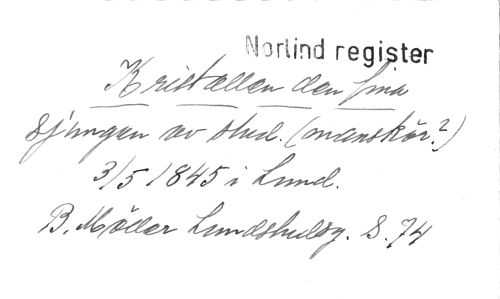 Norlind register
Kristallen den fina
sjungen av stud. (manskör?)
3/5 1845 i Lund.
B. Möller Lundshulsg. S. 74